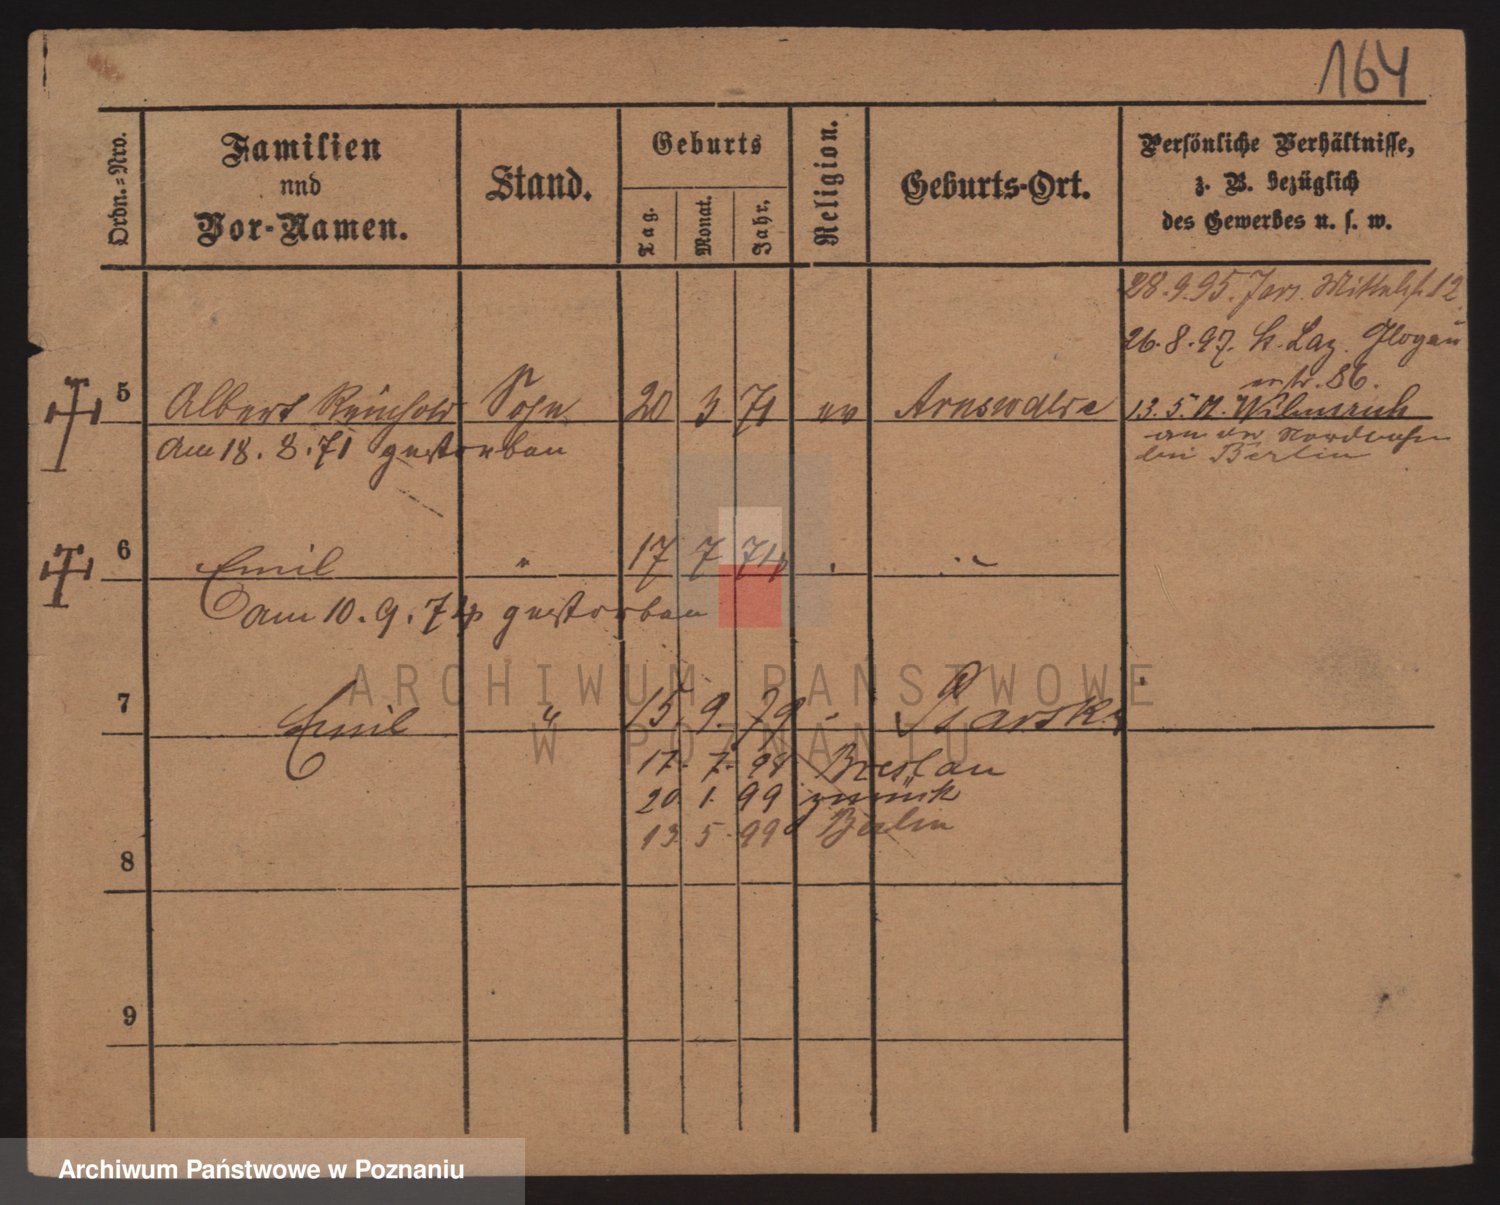 164
Ordn.=Nro.
Familien
nnd
Vor-Namen.
Stand.
Geburts
Tag.
Monat.
Jahr.
Religion.
Geburts-Ort.
Persönliche Verhältnisse,
z. B. bezüglich
des Gewerbes u. s. w.
28.9.95. Jers. Mittelst. 12
26.8.97. St. Laz. Glogau
erstr. 86.
5 Albert Reinhold Sohn 20 3 71 ev Arnswalde
13.5. Wilmersruh
am 18.8.71 gestorben
an der Nordbahn
bei Berlin
6 Emil " 17 7 74 . "
am 10.9.74 gestorben
ARCHIWUM PAŃSTWOWE
W POZNANIU
7 Emil " 15. 9. 79 " Starsk
17. 7. 98 Breslau
20 1. 99 zurück
13 5. 99 Berlin
8
9
Archiwum Państwowe w Poznaniu